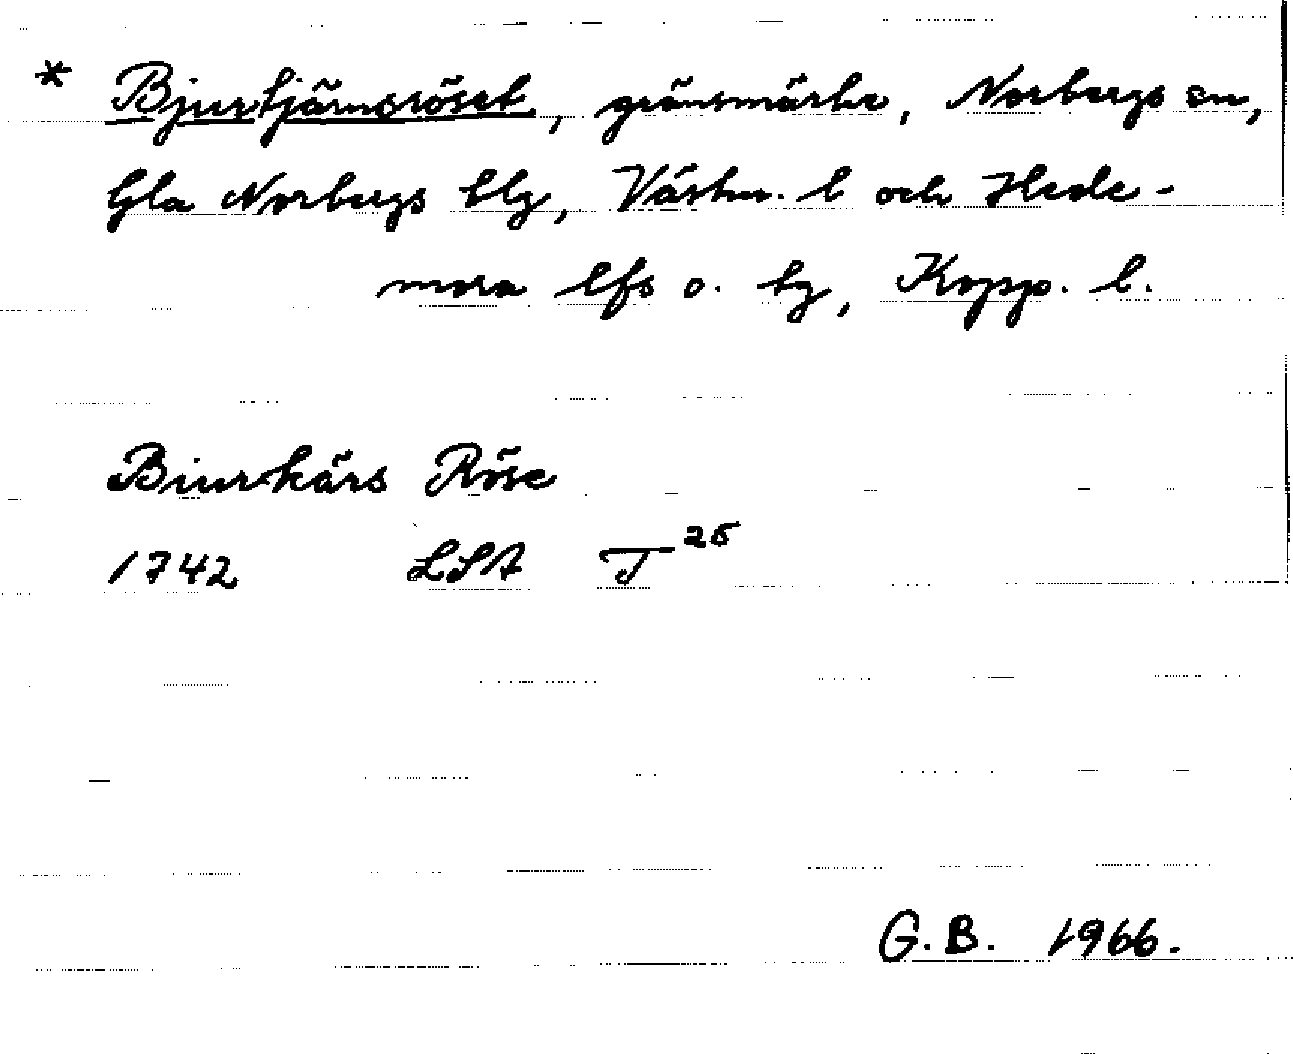 * Bjurtjärnsröset, gränsmärke, Norbergs sn,
Gla Norbergs blg, Västm. l och Hede-
mora lfs o. tg, Kopp. l.
Biurkärs Röse
1742 LSA T 26
G.B. 1966.